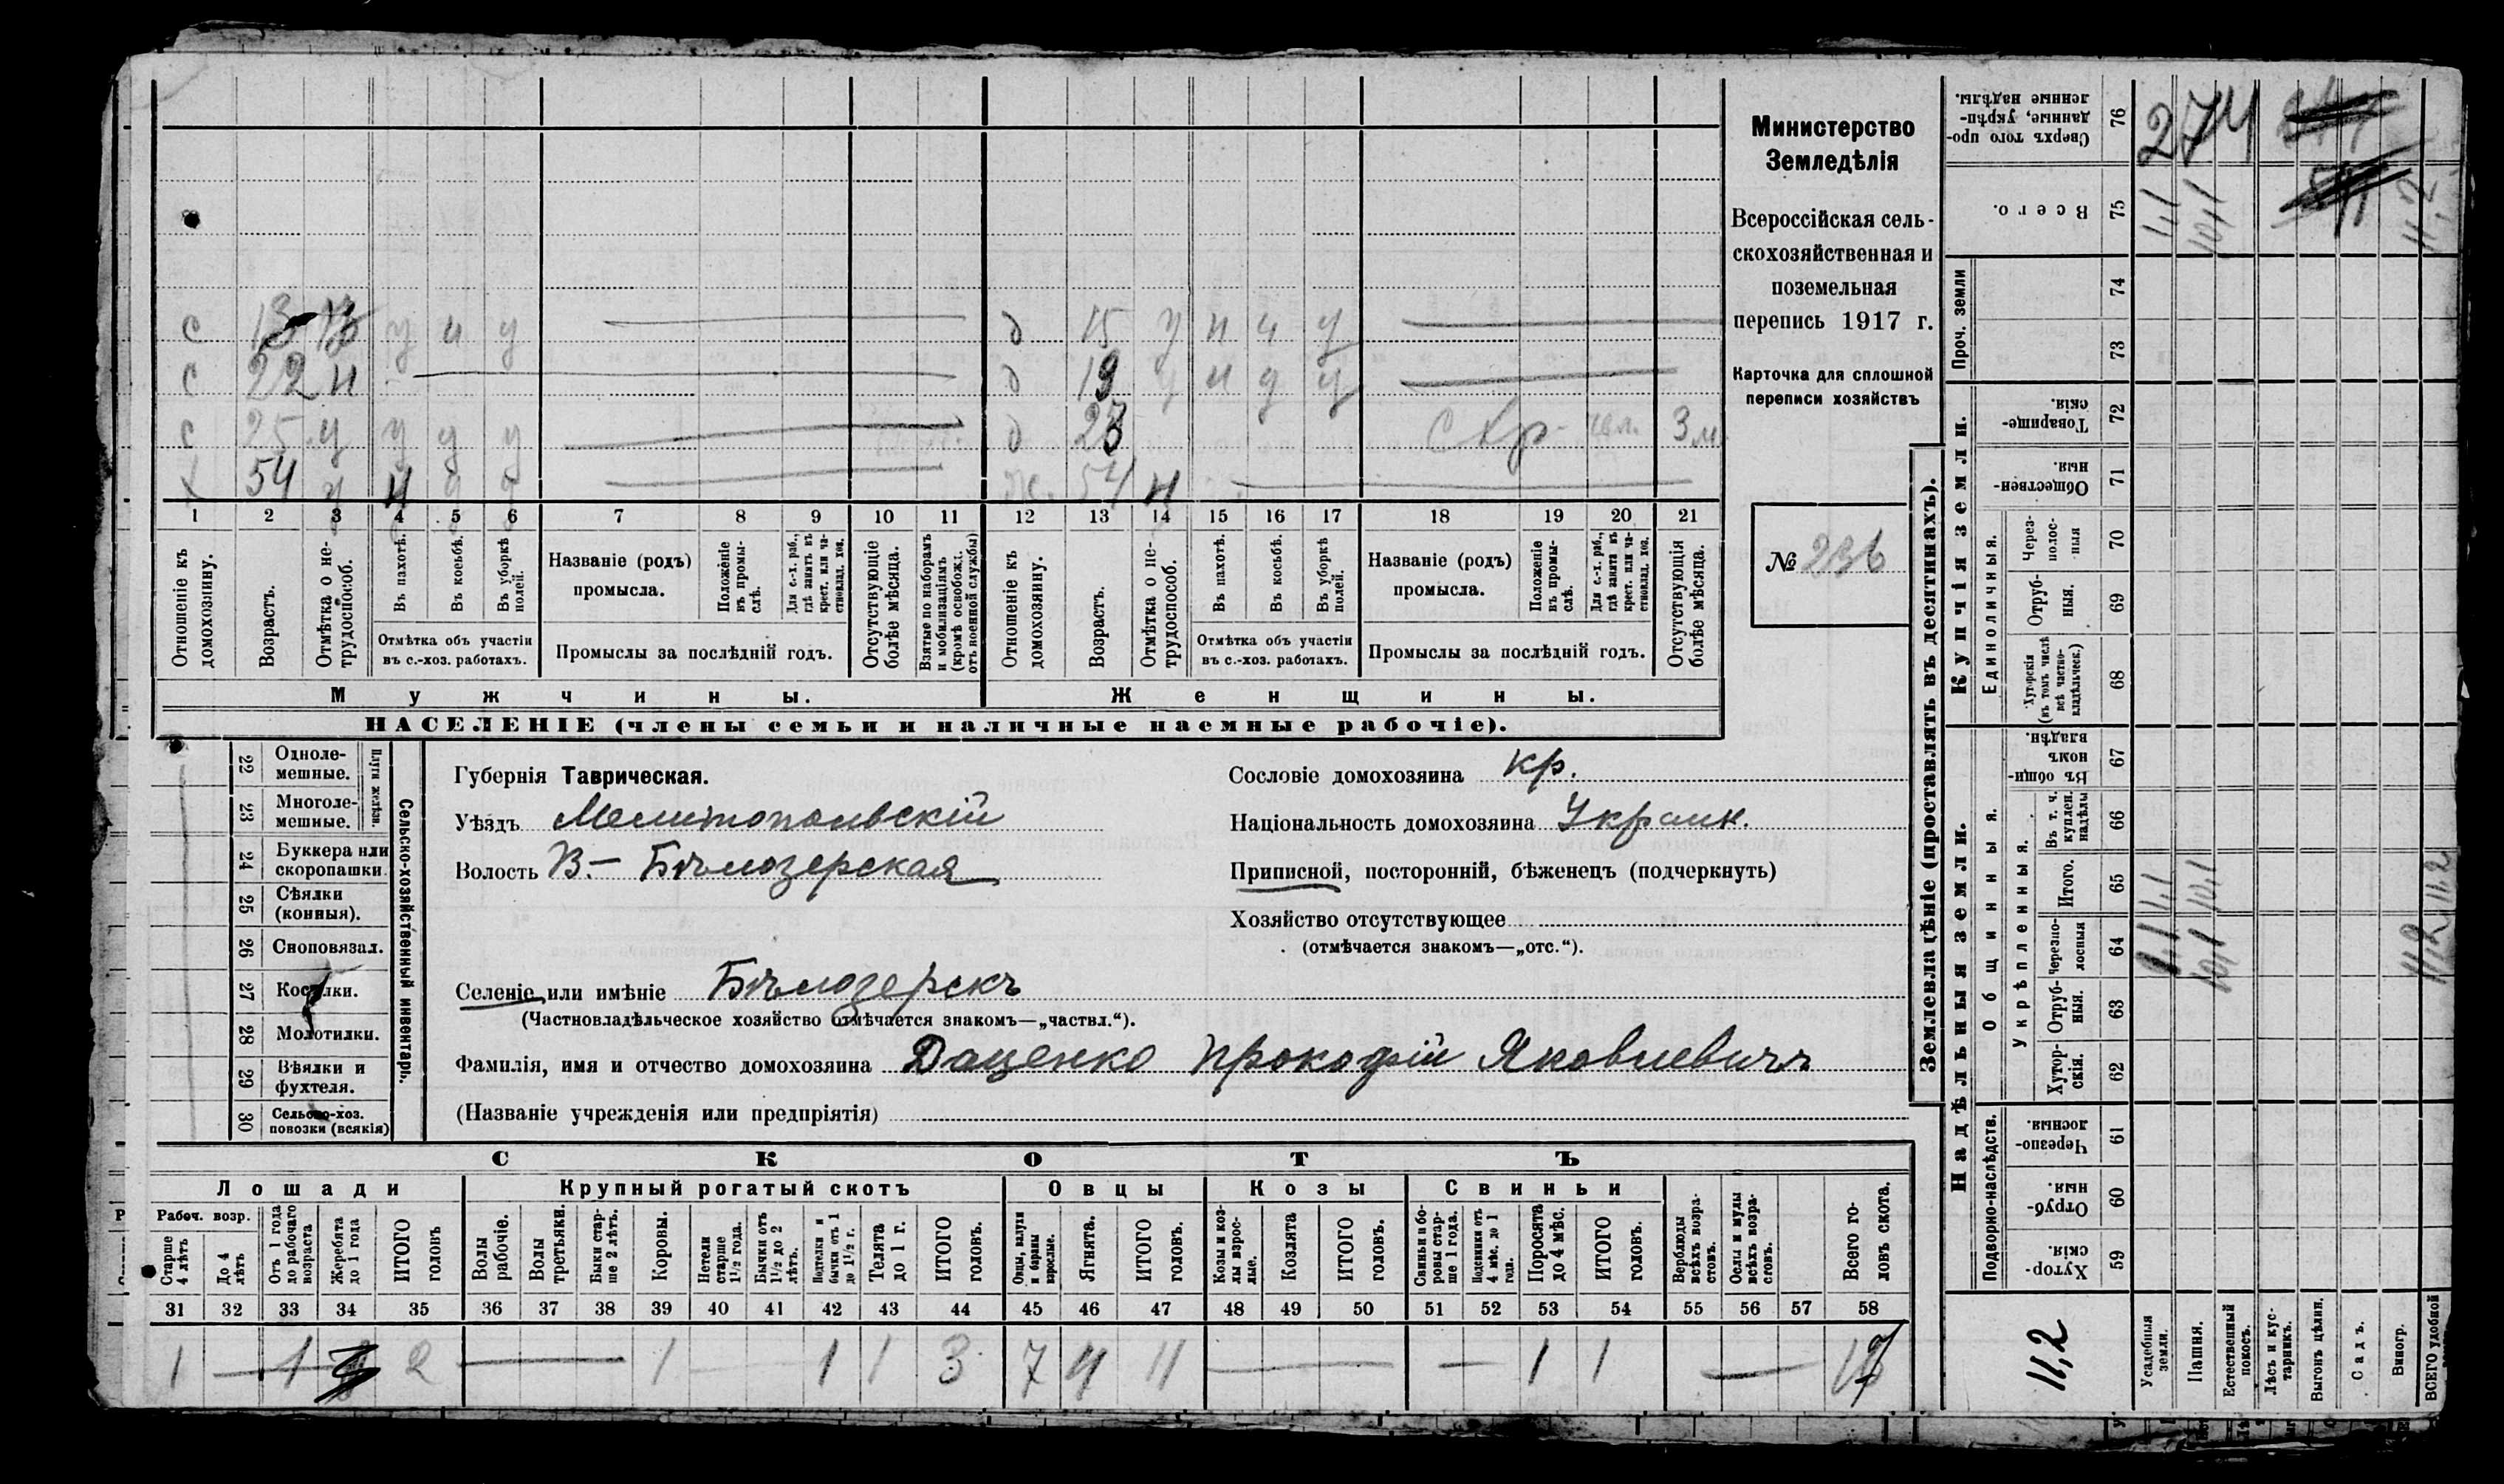 с 13 у и у д 15 у н и у
с 22 н д 19 у н у у
с 25 у у у у д 23 С хр. 3 м.
х 54 у н у у ж. 54 н
1 2 3 4 5 6 7 8 9 10 11 12 13 14 15 16 17 18 19 20 21
Отношеніе къ домохозяину.
Возрастъ.
Отмѣтка о нетрудоспособ.
Въ пахотѣ.
Въ косьбѣ.
Въ уборкѣ полей.
Отмѣтка объ участіи
въ с.-хоз. работахъ.
Названіе (родъ)
промысла.
Положеніе въ промыслѣ.
Для с.-х. раб., гдѣ занятъ въ крест. или частновлад. хоз.
Промыслы за послѣдній годъ.
Отсутствующіе болѣе мѣсяца.
Взятые по наборамъ и мобилизаціямъ (кромѣ освобожд. отъ военной службы)
Отношеніе къ домохозяину.
Возрастъ.
Отмѣтка о нетрудоспособ.
Въ пахотѣ.
Въ косьбѣ.
Въ уборкѣ полей.
Отмѣтка объ участіи
въ с.-хоз. работахъ.
Названіе (родъ)
промысла.
Положеніе въ промыслѣ.
Для с.-х. раб., гдѣ занята въ крест. или частновлад. хоз.
Промыслы за послѣдній годъ.
Отсутствующія болѣе мѣсяца.
Мужчины.
Женщины.
НАСЕЛЕНІЕ (члены семьи и наличные наемные рабочіе).
Министерство
Земледѣлія
Всероссійская сель-
скохозяйственная и
поземельная
перепись 1917 г.
Карточка для сплошной
переписи хозяйствъ
№ 236
22 Одноле-
мешные.
23 Многоле-
мешные.
Плуги желѣзн.
24 Буккера или
скоропашки
25 Сѣялки
(конныя).
26 Сноповязал.
27 Косилки.
28 Молотилки.
29 Вѣялки и
фухтеля.
30 Сельско-хоз.
повозки (всякія)
Сельско-хозяйственный инвентарь.
Губернія Таврическая.
Уѣздъ Мелитопольвскій
Волость В- Бѣлозерская
Сословіе домохозяина кр.
Національность домохозяина Украин.
Приписной, посторонній, бѣженецъ (подчеркнуть)
Хозяйство отсутствующее
(отмѣчается знакомъ—„отс.“).
Селеніе или имѣніе Бѣлозерскъ
(Частновладѣльческое хозяйство отмѣчается знакомъ—„частвл.“).
Фамилія, имя и отчество домохозяина Даценко Прокофій Яковлевичъ
(Названіе учрежденія или предпріятія)
СКОТЪ
Лошади Крупный рогатый скотъ Овцы Козы Свиньи
Рабоч. возр.
Старше 4 лѣтъ
До 4 лѣтъ
Отъ 1 года до рабочаго возраста
Жеребята до 1 года
ИТОГО головъ
Волы рабочіе.
Волы третьяки.
Быки старше 2 лѣтъ.
Коровы.
Нетели старше 1½ года.
Бычки отъ 1½ до 2 лѣтъ.
Подтелки и бычки отъ 1 до 1½ г.
Телята до 1 г.
ИТОГО головъ.
Овцы, валухи и бараны взрослые.
Ягнята.
ИТОГО головъ.
Козы и козлы взрослые.
Козлята
ИТОГО головъ.
Свиньи и боровы старше 1 года.
Подсвинки отъ 4 мѣс. до 1 года.
Поросята до 4 мѣс.
ИТОГО головъ.
Верблюды всѣхъ возрастовъ.
Ослы и мулы всѣхъ возрастовъ.
Всего головъ скота.
31 32 33 34 35 36 37 38 39 40 41 42 43 44 45 46 47 48 49 50 51 52 53 54 55 56 57 58
1 — 1 2 — 1 — 1 1 3 7 4 11 — — 1 1 — 17
Землевладѣніе (проставлять въ десятинахъ).
Купчія земли.
Надѣльныя земли.
Сверхъ того проданные, укрѣпленные надѣлы. 76
Всего. 75
Проч. земли 74 73
Товарищескія. 72
Общественныя. 71
Единоличныя.
Черезполосныя 70
Отрубныя. 69
Хуторскія (въ томъ числѣ всѣ частновладѣльческ.) 68
Общинныя.
Въ общинномъ владѣн. 67
Укрѣпленныя.
Въ т. ч. куплен. надѣлы 66
Итого. 65
Черезполосныя 64
Отрубныя. 63
Хуторскія. 62
Подворно-наслѣдств.
Черезполосныя. 61
Отрубныя. 60
Хуторскія. 59
274
1,1 10,1 11,2
1,1 10,1 11,2
1,1 10,1 11,2
11,2
Усадебныя земли.
Пашня.
Естественный покосъ.
Лѣсъ и кустарникъ.
Выгонъ цѣлин.
Садъ.
Виногр.
ВСЕГО удобной